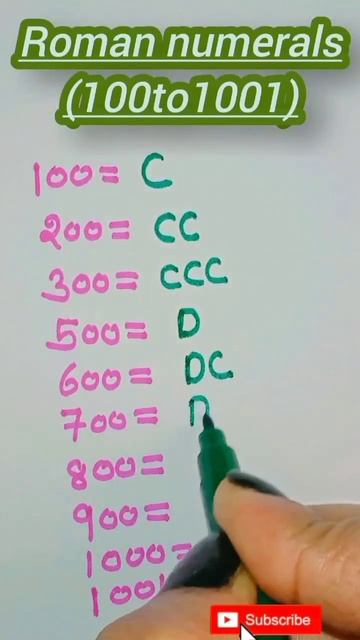 Roman numerals
(100to1001)
100= C
200= CC
300= CCC
500= D
600= DC
700= D
800=
900=
1000=
1001
Subscribe